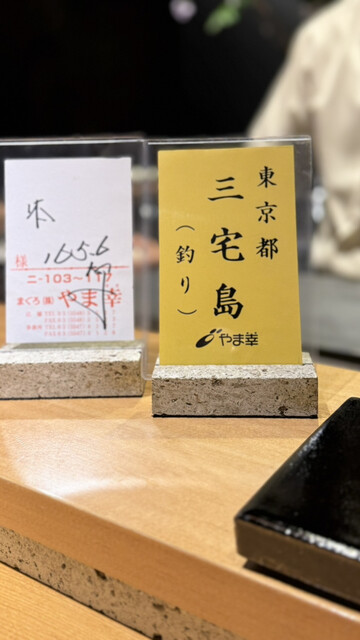 様
165.6
ニ-103~117
まぐろ(問)やま幸
東京都
三宅島
(釣り)
やま幸